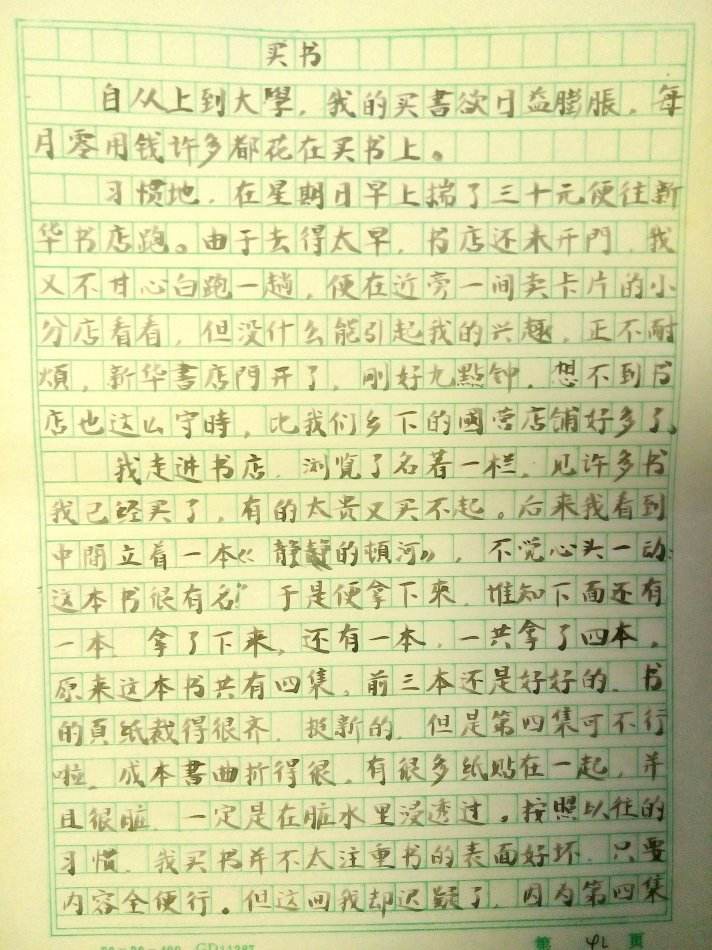 买书
自从上到大學，我的买書欲日益膨脹，每
月零用钱许多都花在买书上。
习惯地，在星期日早上揣了三十元便往新
华书店跑。由于去得太早，书店还未开門，我
又不甘心白跑一趟，便在近旁一间卖卡片的小
分店看看，但没什么能引起我的兴趣，正不耐
煩，新华書店門开了，刚好九點钟，想不到书
店也这么守時，比我们乡下的國营店铺好多了。
我走进书店，浏览了名著一栏，见许多书
我已经买了，有的太贵又买不起。后来我看到
中間立着一本《静静的頓河》，不觉心头一动：
这本书很有名！于是便拿下來，谁知下面还有
一本，拿了下来，还有一本，一共拿了四本，
原来这本书共有四集，前三本还是好好的，书
的頁纸裁得很齐，挺新的，但是第四集可不行
啦，成本書曲折得很，有很多纸貼在一起，并
且很脏，一定是在脏水里浸透过。按照以往的
习惯，我买书并不太注重书的表面好坏，只要
内容全便行。但这回我却迟疑了，因为第四集
20×20=400 GD11287 第 42 页